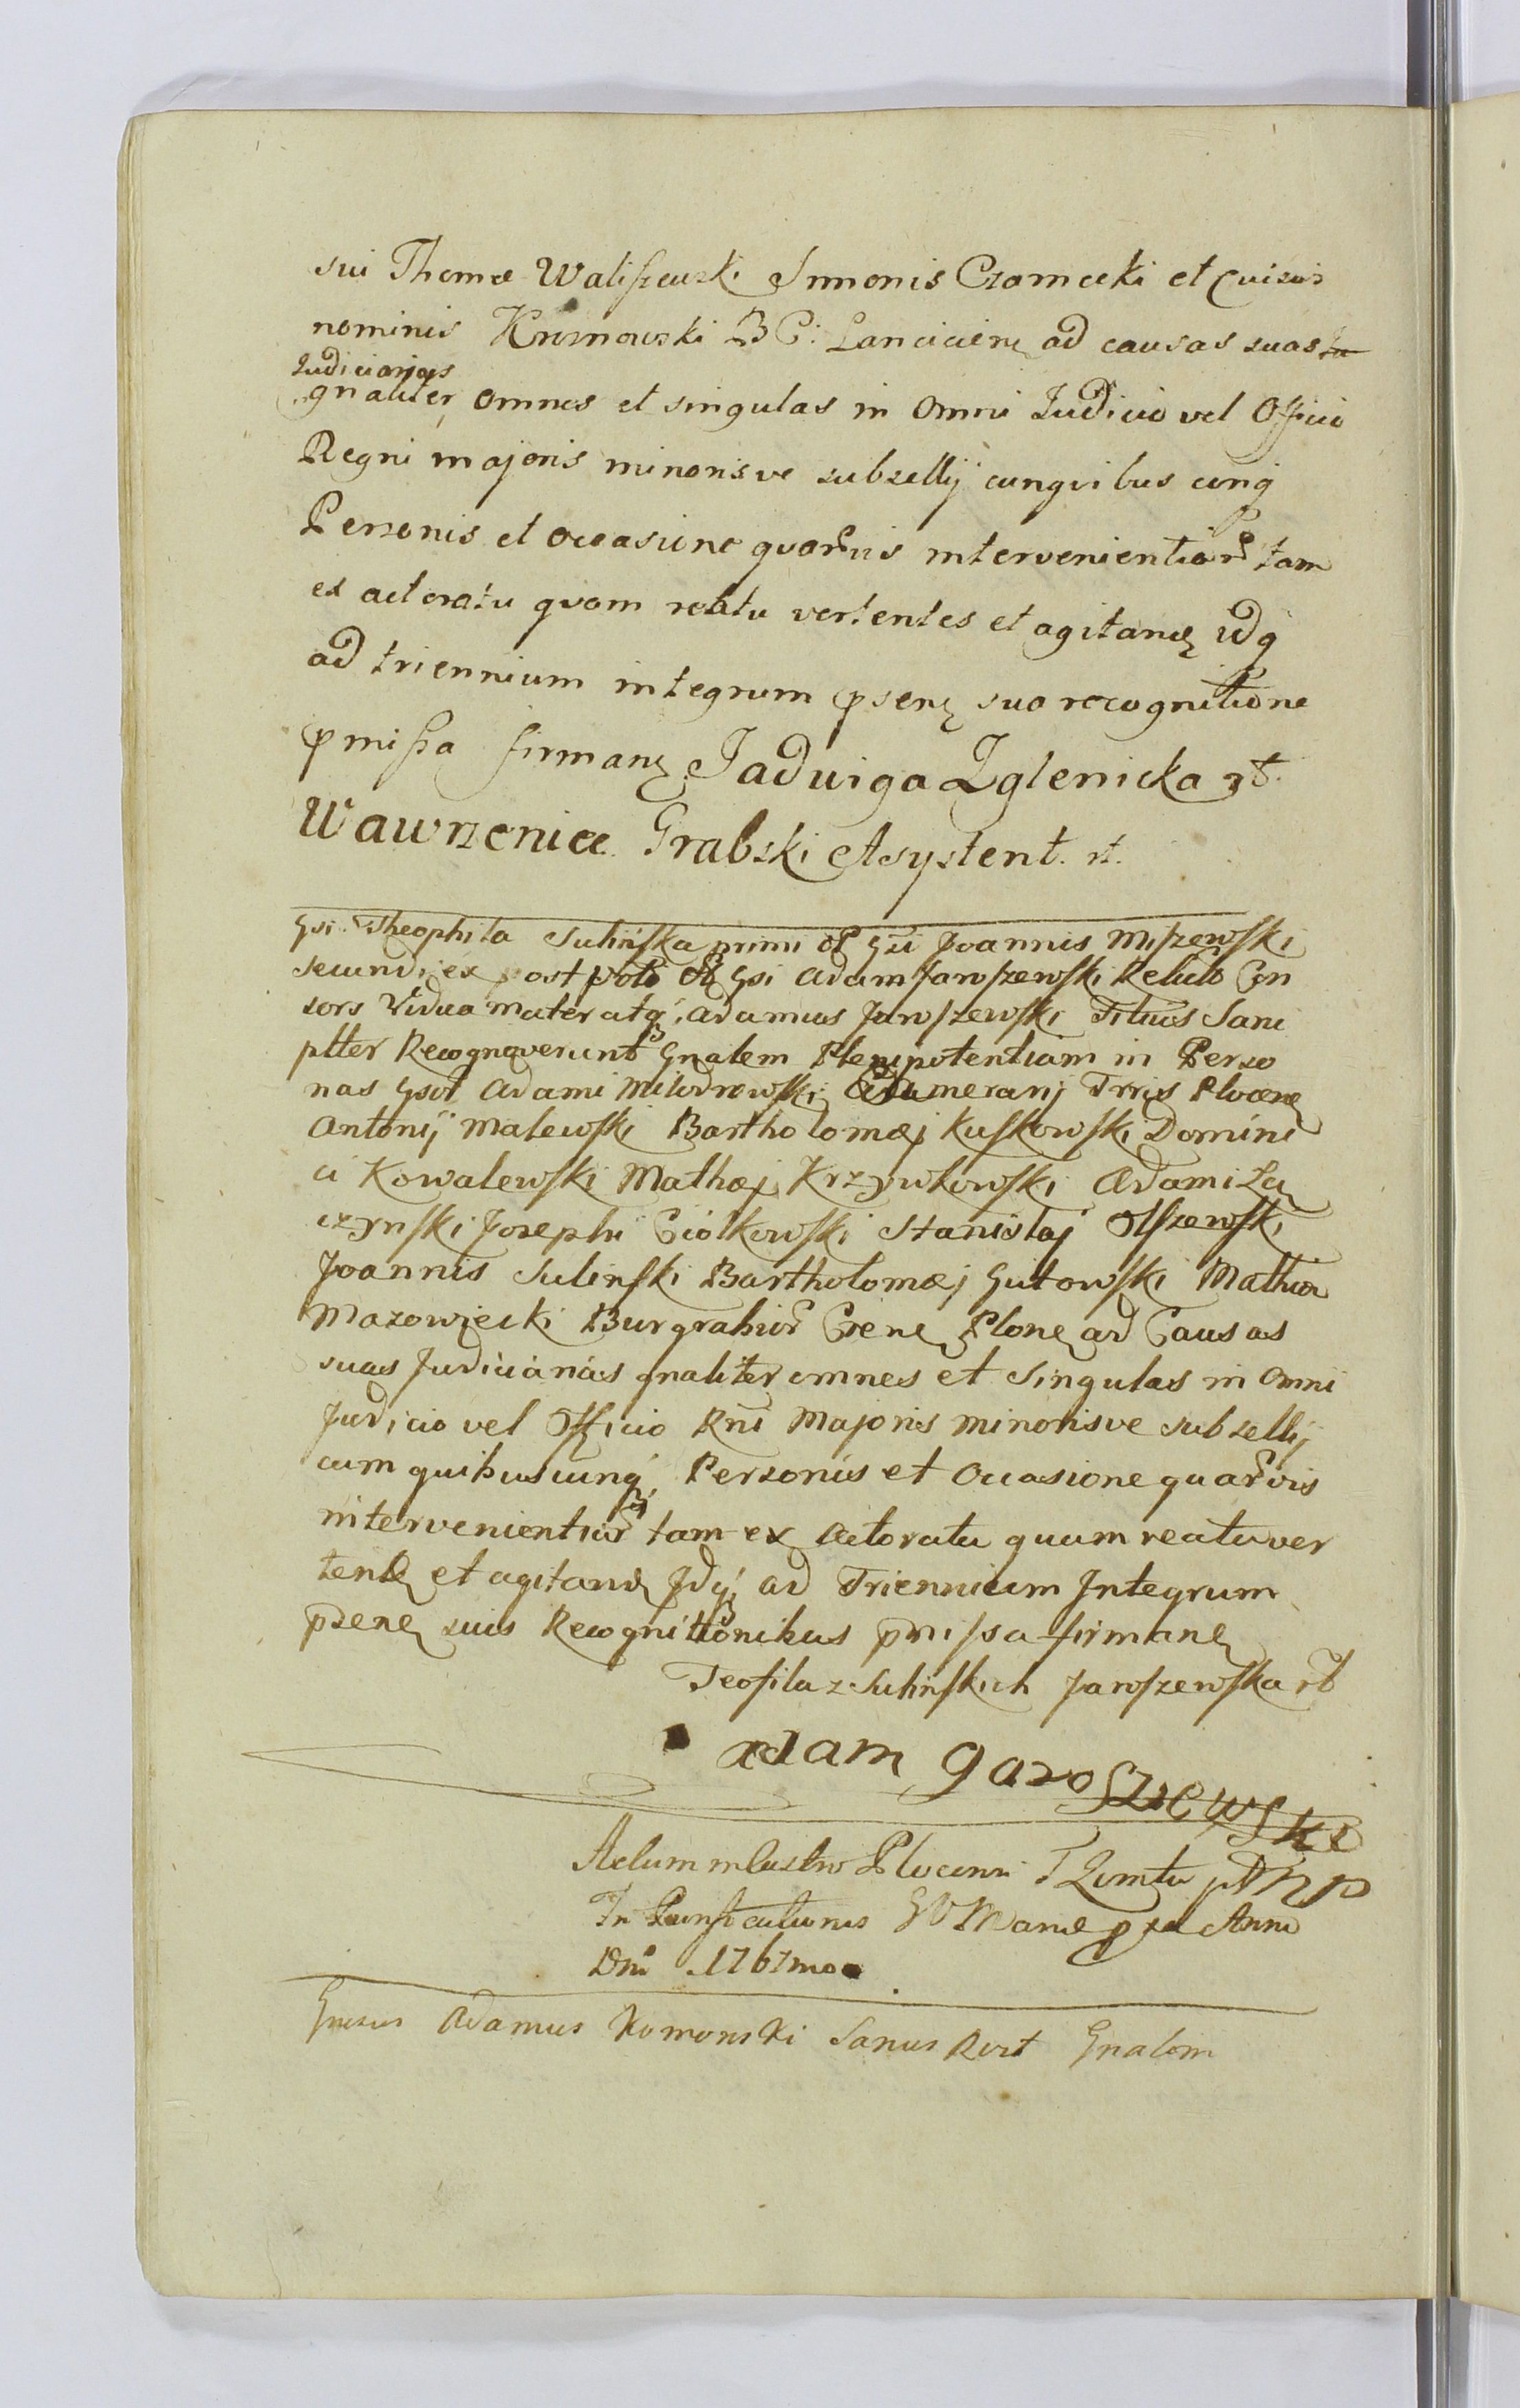 sui Thomæ Waliszewski Simonis Czarnecki et cuisvis
nominis Krosnowski B C: Lancicien ad causas suas
Judiciarias
gnaliter omnes et singulas in omni Judicio vel Officio
Regni majoris minorisve subsellij cunqvibus cunq
Personis et occasione qvorũvis intervenientiorũ tam
ex actoratu qvam reatu vertentes et agitand idq
ad triennium integrum psen sua recognitione
pmissa firman Jadwiga Zglenicka rt.
Wawrzeniec Grabski Asystent. rt.
Gsi. Theophila Sulińska primi Gsi Joannis Miszewski
secundi ex post voti Gsi Adam Jaroszewski Relicta Con
sors Vidua mater atq; Adamus Jaroszewski Filius Sani
pltter Recognoverunt Gnalem Plenipotentiam in Perso
nas Gsor Adami Milodrowski Camerarij Trris Plocen
Antonij Malewski Bartholomæj Kuskowski Domini
ci Kowalewski Mathæj Krzywkowski Adami Łą
czynski Josephi Ciółkowski Stanislaj Olszewski
Joannis Sulinski Bartholomæj Gutowski Mathia
Mazowiecki Burgrabior Cien Plonen ad Causas
suas Judiciarias gnaliter omnes et singulas in omni
Judicio vel Officio Rni Majoris minorisve subsellij
cum quibuscunq; Personis et Occasione quarvis
intervenientior tam ex Actoratu quam reatu ver
tent et agitand Jdq; ad Triennium Integrum
psen suis Recognitionibus pmissa firman
Teofila z Sulinskich Jaroszewska rt
Adam Jaroszewski
Actum in Castro Plocensi
In Purificationis B V Mariæ Anno
Dni 1767mo
Gnrosus Adamus Komorski Sanus Rcrt Gnalem